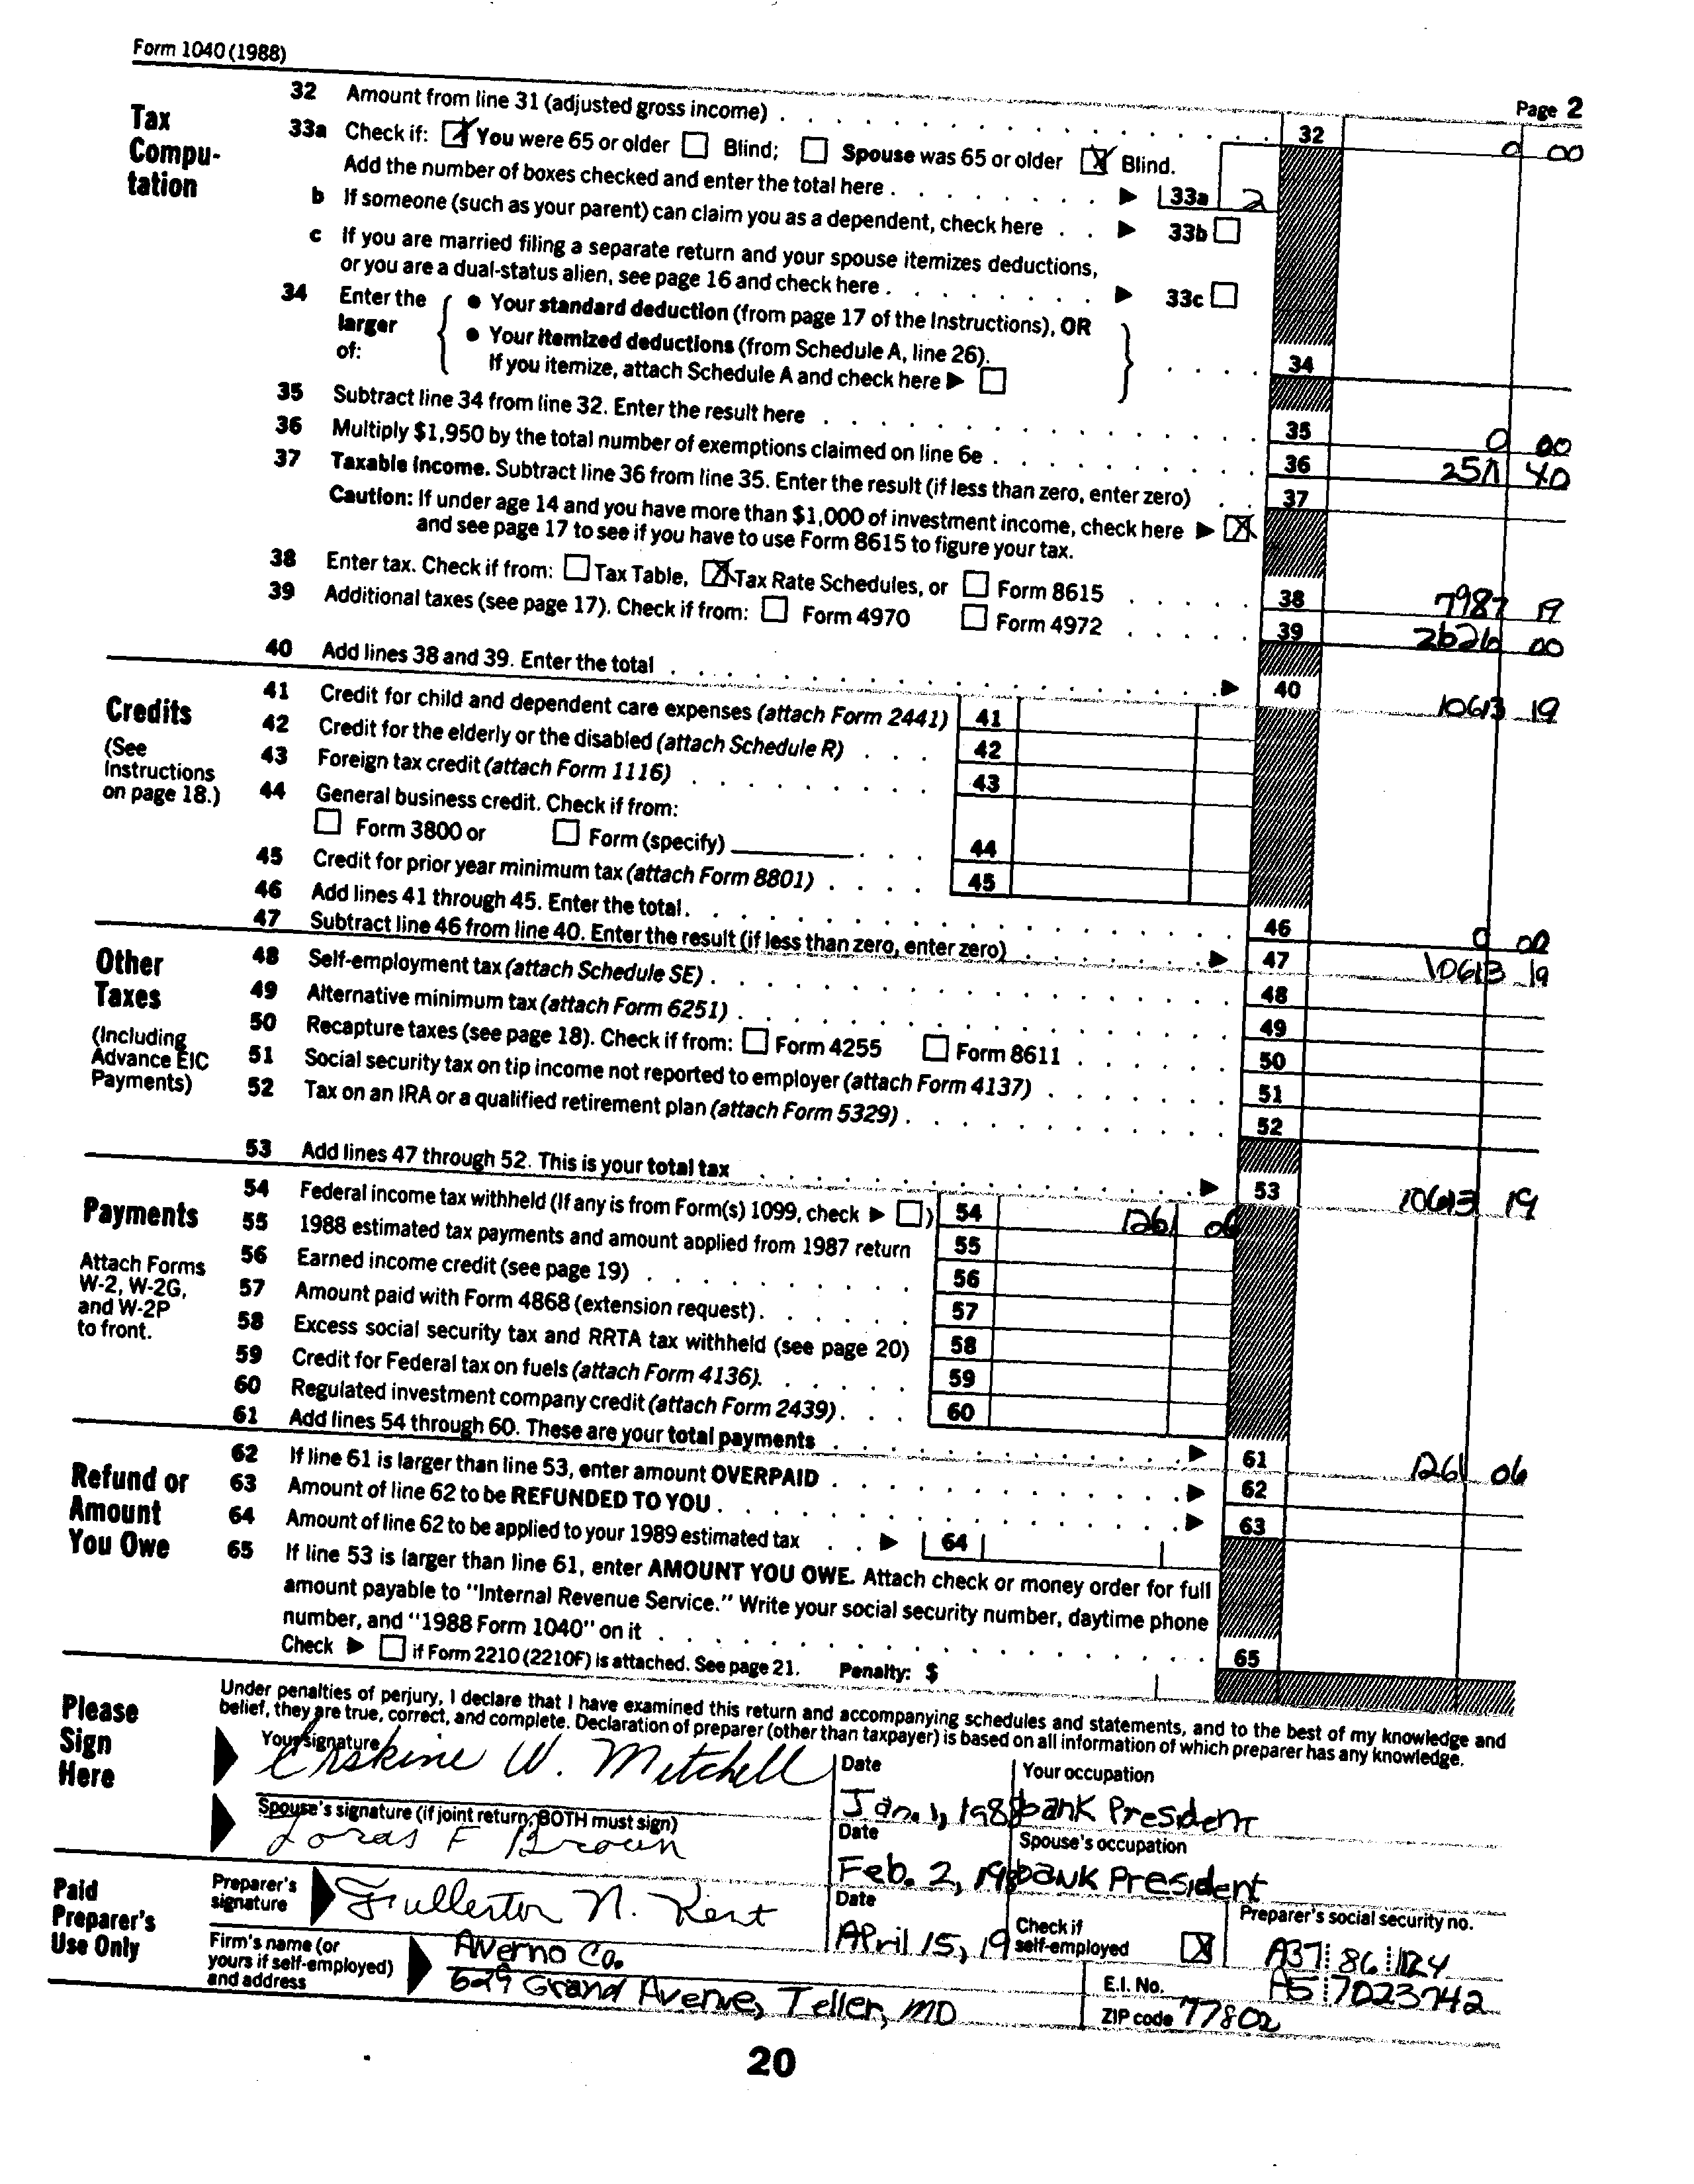 Form 1040 (1988)
Page 2
Tax Compu-tation
32 Amount from line 31 (adjusted gross income) 32 0 00
33a Check if: You were 65 or older Blind; Spouse was 65 or older Blind.
Add the number of boxes checked and enter the total here 33a 2
b If someone (such as your parent) can claim you as a dependent, check here 33b
c If you are married filing a separate return and your spouse itemizes deductions,
or you are a dual-status alien, see page 16 and check here 33c
34 Enter the larger of:
• Your standard deduction (from page 17 of the Instructions), OR
• Your itemized deductions (from Schedule A, line 26).
If you itemize, attach Schedule A and check here 34
35 Subtract line 34 from line 32. Enter the result here 35 0 00
36 Multiply $1,950 by the total number of exemptions claimed on line 6e 36 2511 40
37 Taxable income. Subtract line 36 from line 35. Enter the result (if less than zero, enter zero) 37
Caution: If under age 14 and you have more than $1,000 of investment income, check here
and see page 17 to see if you have to use Form 8615 to figure your tax.
38 Enter tax. Check if from: Tax Table, Tax Rate Schedules, or Form 8615 38 7987 19
39 Additional taxes (see page 17). Check if from: Form 4970 Form 4972 39 2626 00
40 Add lines 38 and 39. Enter the total 40 10613 19
Credits
(See Instructions on page 18.)
41 Credit for child and dependent care expenses (attach Form 2441) 41
42 Credit for the elderly or the disabled (attach Schedule R) 42
43 Foreign tax credit (attach Form 1116) 43
44 General business credit. Check if from:
Form 3800 or Form (specify) 44
45 Credit for prior year minimum tax (attach Form 8801) 45
46 Add lines 41 through 45. Enter the total. 46 0 00
47 Subtract line 46 from line 40. Enter the result (if less than zero, enter zero) 47 10613 19
Other Taxes
(Including Advance EIC Payments)
48 Self-employment tax (attach Schedule SE) 48
49 Alternative minimum tax (attach Form 6251) 49
50 Recapture taxes (see page 18). Check if from: Form 4255 Form 8611 50
51 Social security tax on tip income not reported to employer (attach Form 4137) 51
52 Tax on an IRA or a qualified retirement plan (attach Form 5329) 52
53 Add lines 47 through 52. This is your total tax 53 10613 19
Payments
Attach Forms W-2, W-2G, and W-2P to front.
54 Federal income tax withheld (If any is from Form(s) 1099, check ) 54 1261 06
55 1988 estimated tax payments and amount applied from 1987 return 55
56 Earned income credit (see page 19) 56
57 Amount paid with Form 4868 (extension request). 57
58 Excess social security tax and RRTA tax withheld (see page 20) 58
59 Credit for Federal tax on fuels (attach Form 4136). 59
60 Regulated investment company credit (attach Form 2439) 60
61 Add lines 54 through 60. These are your total payments 61 1261 06
Refund or Amount You Owe
62 If line 61 is larger than line 53, enter amount OVERPAID 62
63 Amount of line 62 to be REFUNDED TO YOU 63
64 Amount of line 62 to be applied to your 1989 estimated tax 64
65 If line 53 is larger than line 61, enter AMOUNT YOU OWE. Attach check or money order for full
amount payable to "Internal Revenue Service." Write your social security number, daytime phone
number, and "1988 Form 1040" on it 65
Check if Form 2210 (2210F) is attached. See page 21. Penalty: $
Please Sign Here
Under penalties of perjury, I declare that I have examined this return and accompanying schedules and statements, and to the best of my knowledge and
belief, they are true, correct, and complete. Declaration of preparer (other than taxpayer) is based on all information of which preparer has any knowledge.
Your signature Date Your occupation
Erskine W. Mitchell Jan. 1, 198 bank President
Spouse's signature (if joint return, BOTH must sign) Date Spouse's occupation
Loras F Brown Feb. 2, 19 bank President
Paid Preparer's Use Only
Preparer's signature Fullerton N. Kent Date April 15, 19 Check if self-employed Preparer's social security no. A37 86 1124
Firm's name (or yours if self-employed) and address
Averno Co. E.I. No. A5 7023742
629 Grand Avenue, Teller, MD ZIP code 77802
20